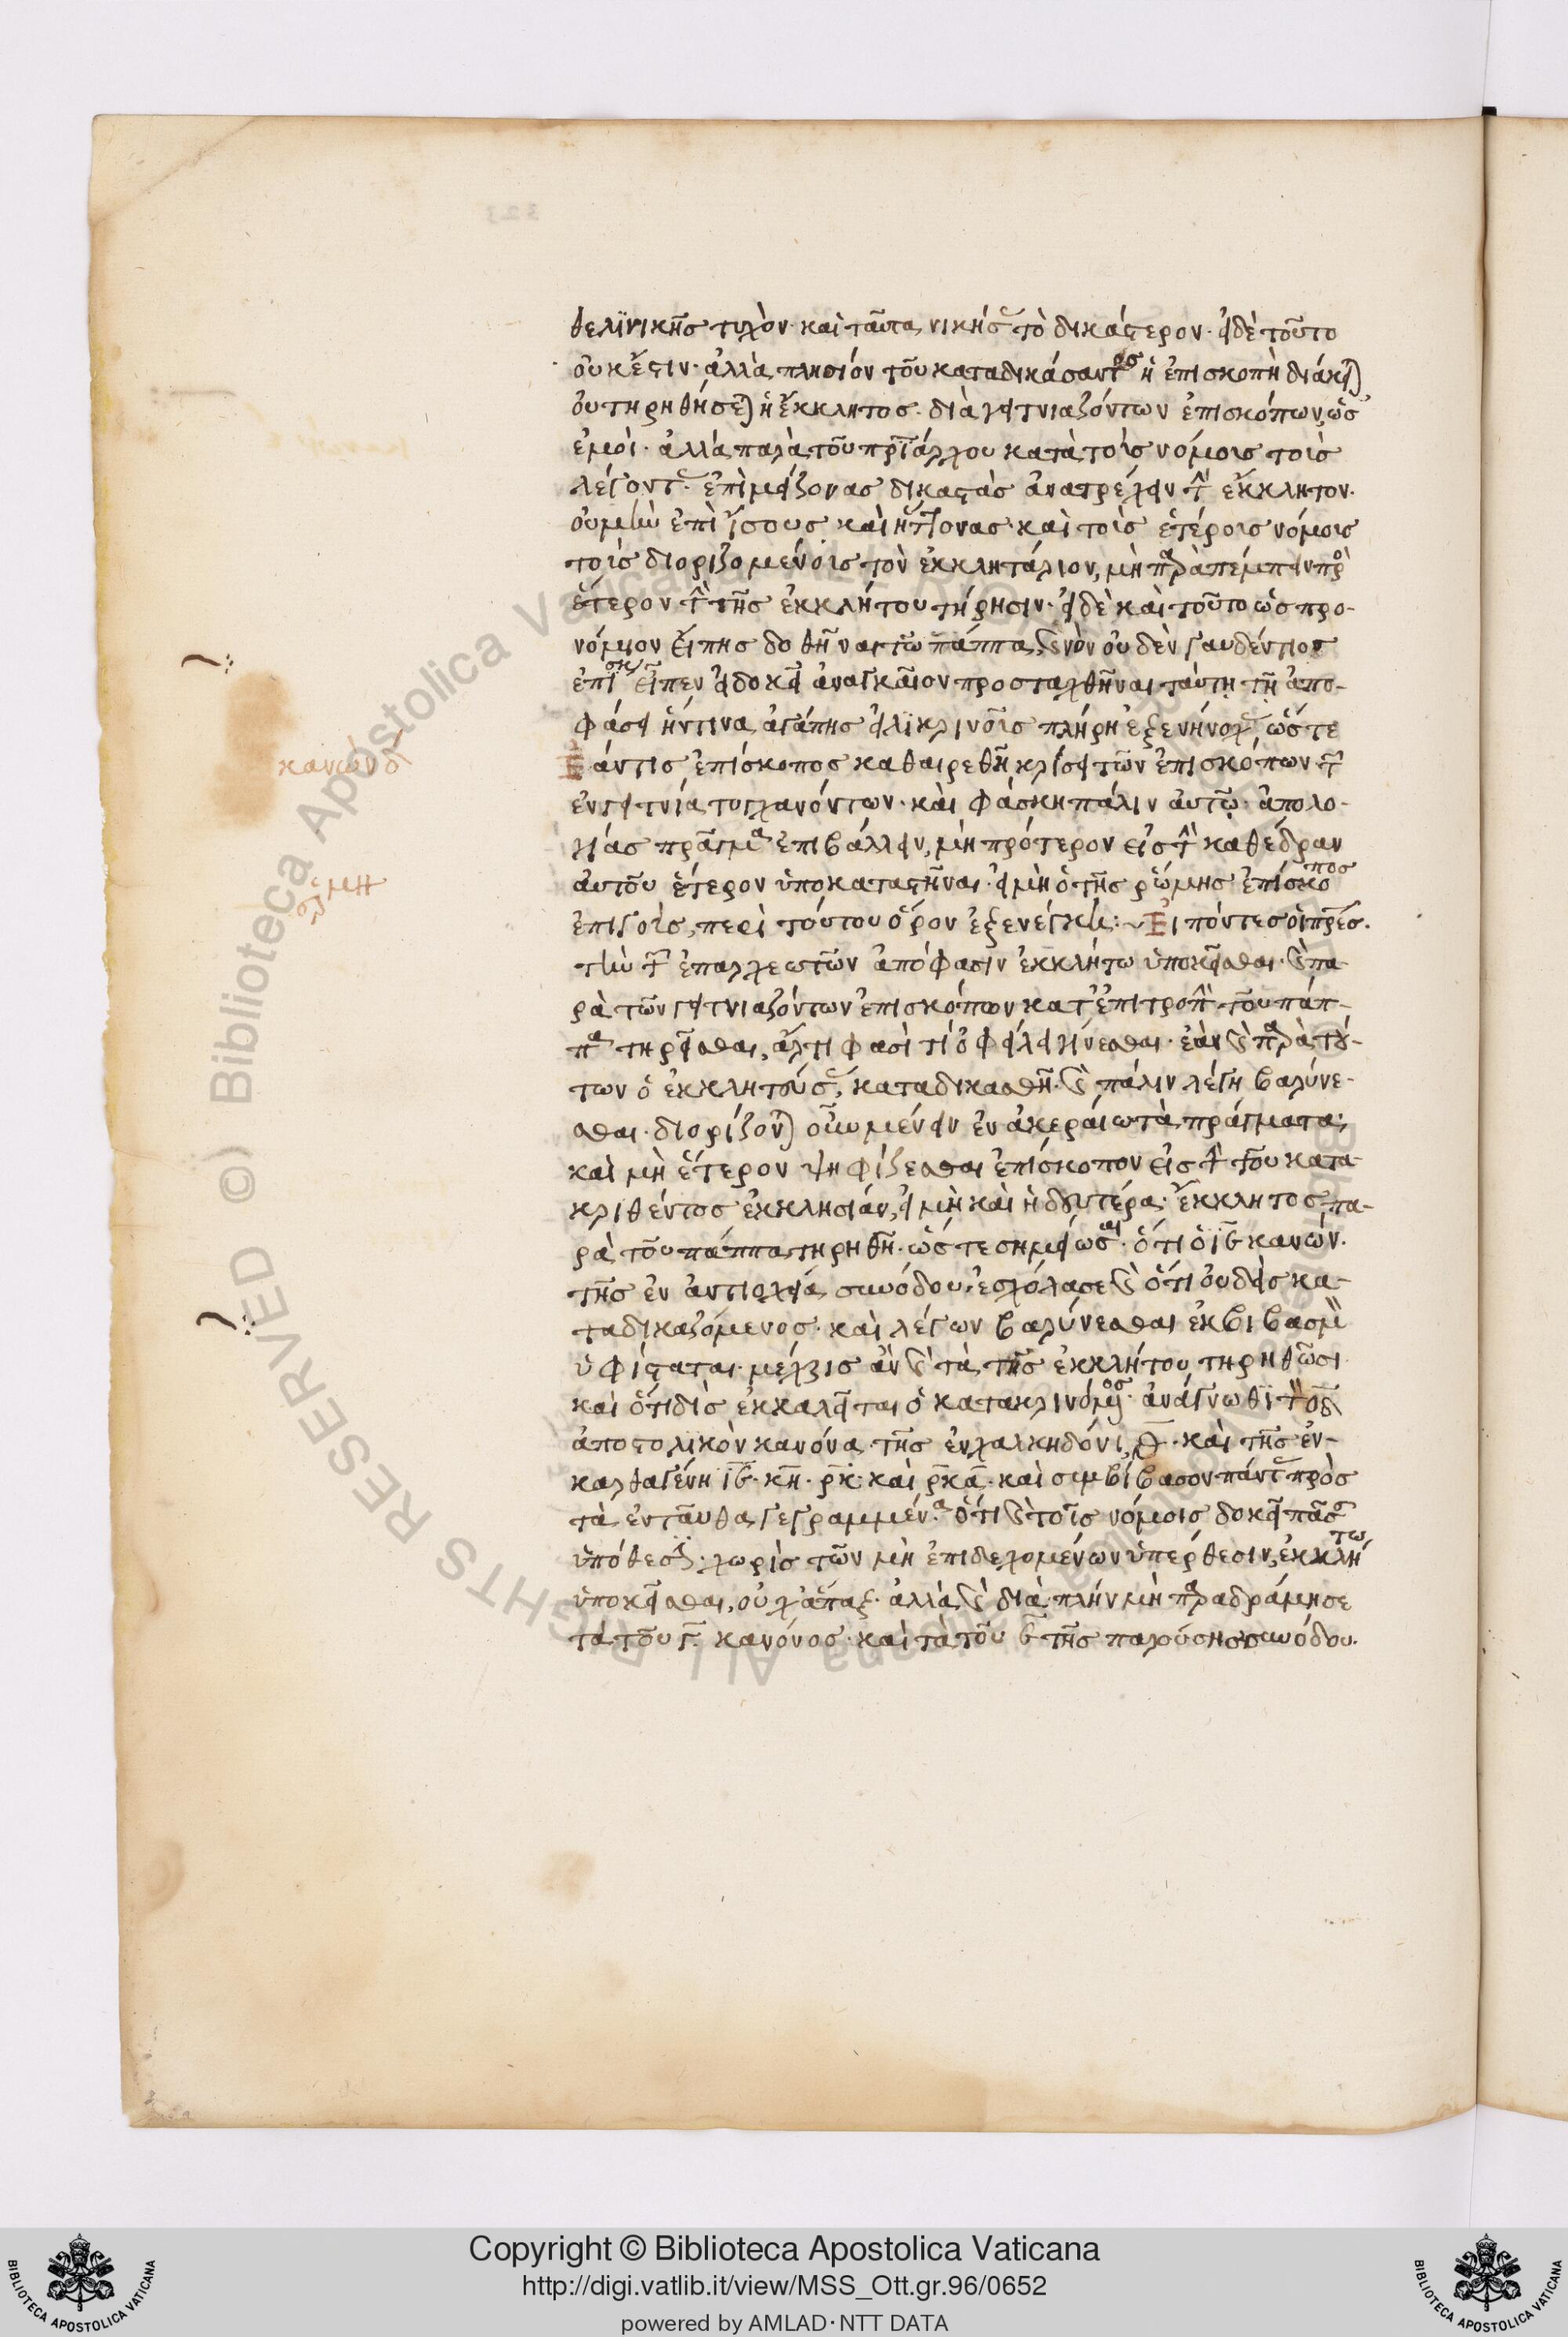 θελϊνικῆς τυχὸν· καὶ ταῦτα, νικήσ τὸ δικάστερον· εἰ δὲ τοῦτο
οὐκ ἔστιν· ἀλλὰ πλησιόν τοῦ καταδικάσαντος ἡ ἐπισκοπὴ διάκει
οὐ τηρηθήσεται ἡ ἔκκλητος· διὰ γειτνιαζόντων ἐπισκόπων, ὡς
ἐμοί· ἀλλὰ παρὰ τοῦ πριάρχου κατὰ τοὶς νόμοις τοὶς
λέγοντ· ἐπὶ μείζονας δικαστὰς ἀνατρέχειν τὴν ἔκκλητον·
οὐμὴν ἐπὶ ἴσους καὶ ἥττονας· καὶ τοὶς ἑτέροις νόμοις
τοὶς διοριζομένοις τὸν ἐκκλητάριον, μὴ παραπέμπειν πρὸ
ἕτερον τὴν τῆς ἐκκλήτου τήρησιν· εἰ δὲ καὶ τοῦτο ὡς προ-
νόμιον εἴπης δοθῆναι τῶ πάππα, καινὸν οὐδὲν γαυδέντιος
ἐπισκ εἶπεν εἰ δοκεῖ ἀναγκαῖον προσταχθῆναι ταύτῃ τῇ ἀπο-
φάσει ἥντινα, ἀγάπης εἰλϊκρινοῖς πλήρη ἐξενήνοχ, ὥστε
κανών δ
Ἐάν τις ἐπίσκοπος καθαιρεθῆ κρίσει τῶν ἐπισκόπων τῶν
ἐν γειτνία τυγχανόντων· καὶ φάσκη πάλιν αὐτῷ· ἀπολο-
γίας πρᾶγμα ἐπιβάλλειν, μὴ πρότερον εἰς τὴν καθέδραν
αὐτοῦ ἕτερον ὑποκαταστῆναι· εἰ μὴ ὁ τῆς ῥώμης ἐπίσκοπος
ἑρμη
ἐπιγοὶς, περὶ τούτου ὅρον ἐξενέγκη:· Εἰπόντες οἱ πρές.
τὴν τῶν ἐπαρχεωτῶν ἀπόφασιν ἐκκλήτω ὑποκεῖσθαι· καὶ πα
ρὰ τῶν γειτνιαζόντων ἐπισκόπων κατ' ἐπιτροπὴν τοῦ πάπ-
πα τηρεῖσθαι, ἄρτι φασὶ τί ὀφείλει γίνεσθαι· ἐὰν καὶ παρὰ τού-
των ὁ ἐκκλητούσ, καταδικασθῆ· καὶ πάλιν λέγη βαρύνε-
σθαι· διορίζονται οὖν μένειν ἐν ἀκεραίω τὰ πράγματα,
καὶ μὴ ἕτερον ψηφίζεσθαι ἐπίσκοπον εἰς τὴν τοῦ κατα-
κριθέντος ἐκκλησίαν, εἰ μὴ καὶ ἡ δευτέρα· ἔκκλητος πα-
ρὰ τοῦ πάππα, τηρηθῆ· ὥστε σημείωσαι· ὅτι ὁ ιβ κανών·
τῆς ἐν ἀντιοχεία συνόδου, ἐσχόλασε καὶ ὅτι οὐδεὶς κα-
ταδικαζόμενος· καὶ λέγων βαρύνεσθαι ἐκβιβασμὸν
ὑφίσταται· μέχρις ἂν καὶ τὰ τῆς ἐκκλήτου τηρηθῶσι
καὶ ὅτι δὶς ἐκκαλεῖται ὁ κατακρινόμενος· ἀνάγνωθι τὸν οδ
ἀποστολικὸν κανόνα· τῆς ἐν χαλκηδόνι, θ· καὶ τῆς ἐν
καρθαγένη ιβ· κη· ρκ· καὶ ρκα· καὶ συμβίβασον πάντ πρὸς
τὰ ἐνταῦθα, γεγραμμένα· ὅτι καὶ τοῖς νόμοις δοκεῖ πᾶσ
ὑπόθεσ· χωρὶς τῶν μὴ ἐπιδεχομένων ὑπέρθεσιν, ἐκκλήτω
ὑποκεῖσθαι, οὐχ ἅπαξ· ἀλλὰ καὶ δία πλὴν μὴ παραδράμη σε
τὰ τοῦ γ κανόνος· καὶ τὰ τοῦ ϛ τῆς παρούσης συνόδου.
Copyright © Biblioteca Apostolica Vaticana
http://digi.vatlib.it/view/MSS_Ott.gr.96/0652
powered by AMLAD·NTT DATA